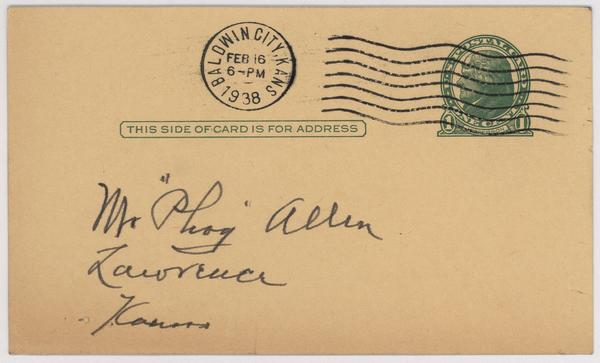 BALDWIN CITY, KANS
FEB 16
6-PM
1938
THIS SIDE OF CARD IS FOR ADDRESS
Mr "Phog" Allen
Lawrence
Kansas